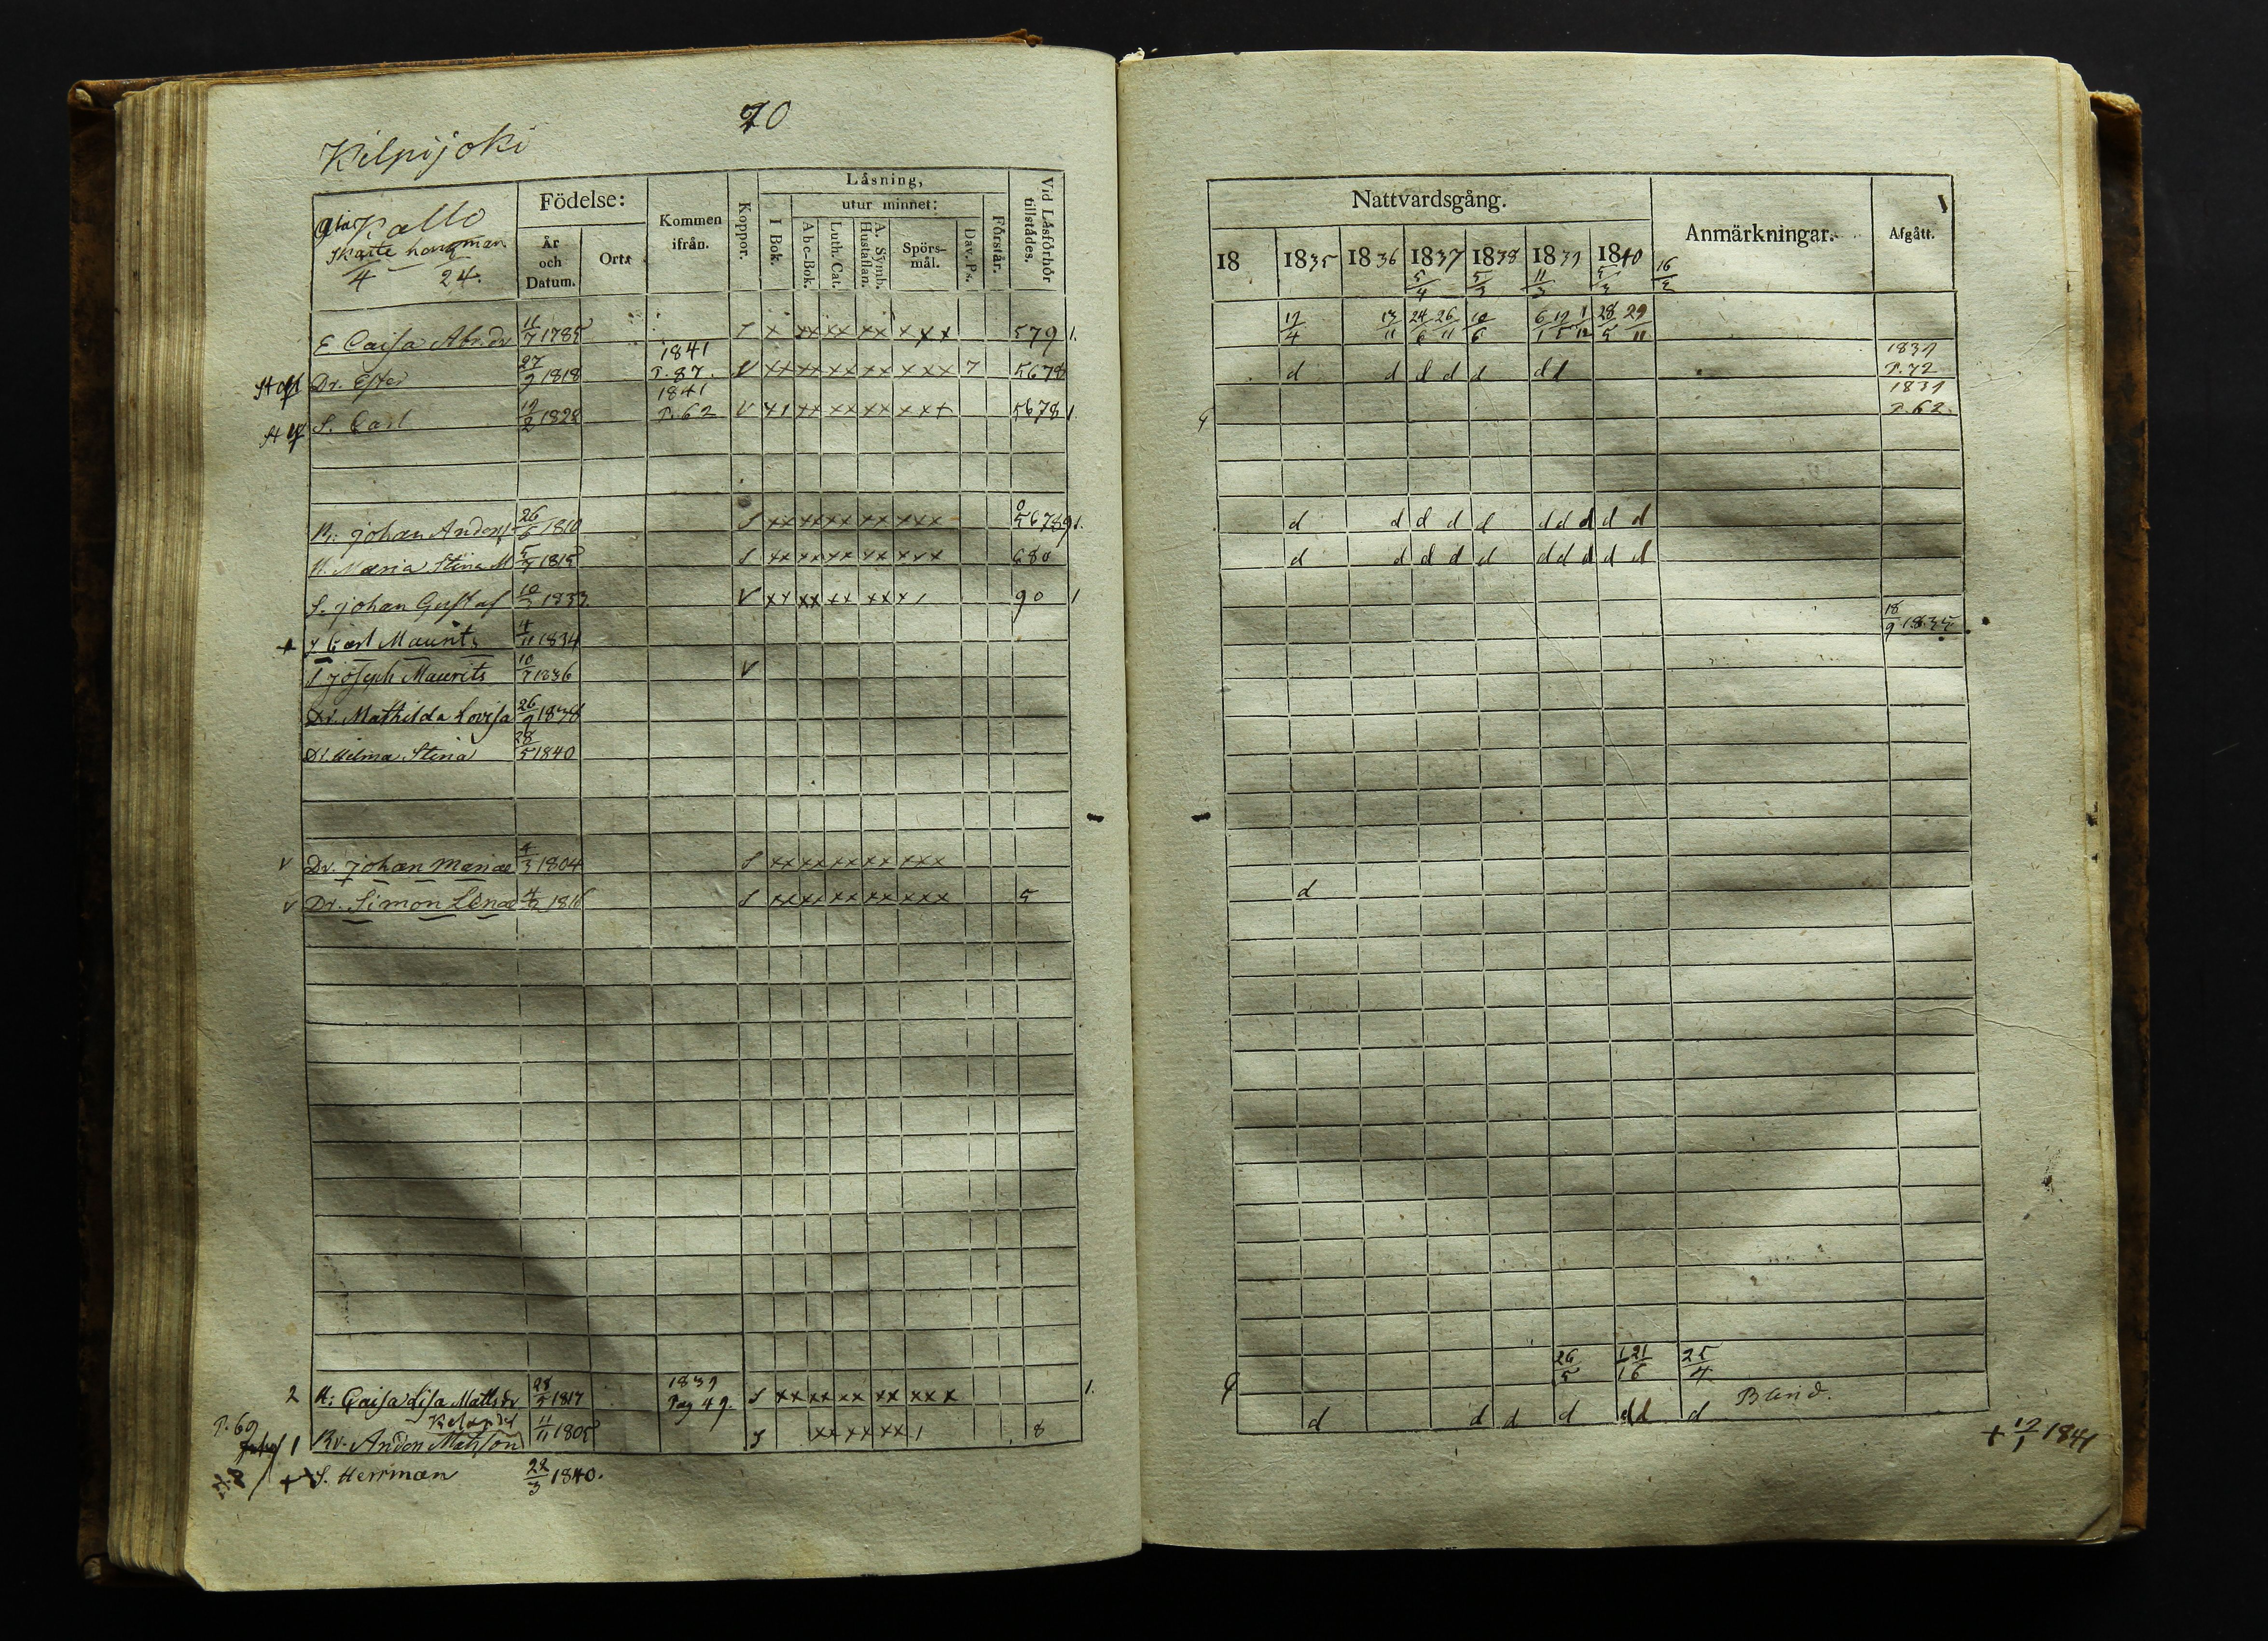 70
Kilpijoki
Kallo
Skatte
4 24.
Födelse:
År och Datum.
Ort.
Kommen ifrån.
Koppor.
Läsning,
utur minnet:
I Bok.
Abc-Bok.
Luth. Cat.
A. Symb. Hustaflan.
Spörsmål.
Dav. Ps.
Förstår.
Vid Läsförhör tillstädes.
E Caisa Abr.dr 11/7 1785 x xx xx xx x x x 579 1.
Dr. Ester 27/9 1818 1841 P. 87. V xx xx xx xx x x x 7 5678
S. Carl 19/2 1828 1841 P. 62 V x1 xx xx xx x x + 5678 1.
B. Johan Anders 26/6 1810 S xx xx xx xx xxx 0 56789 1.
H. Maria Stina M 5/7 1815 S xx xx xx xx xxx 680
S. Johan Gustaf 10/3 1833. V xx xx xx xx x 1 90 1
+ S Carl Maurits 4/11 1834
S Joseph Maurits 10/7 1836 V
Dr. Mathilda Lovisa 26/9 1838
Dr. Helma Stina 28/5 1840
v Dr. Johan Mariae 4/3 1804 S xx xx xx xx xxx
v Dr. Simon Lenae 4/2 1816 S xx xx xx xx xxx 5
2 H: Caisa Lisa Mattsdr 28/5 1817 1839 Pag 49. S xx xx xx xx xxx 1.
P. 69 1 Kv. Anders Matsson 11/11 1805 S xx xx xx 1 8
+ S. Herrman 22/3 1840.
Nattvardsgång.
Anmärkningar.
Afgått.
18 1835 1836 1837 1838 1839 1840
5/4 5/3 11/3 5/3 16/2
12/4 13/11 24/6 26/11 10/6 6/1 12/5 1/12 28/5 29/11
d d d d d d d 1839 P. 72
1839 P. 62.
d d d d d d d d d d
d d d d d d d d d d
18/9 1835.
d
26/5 1/1 21/6 25/4
d d d d d d d Blind.
+ 12/1 1841